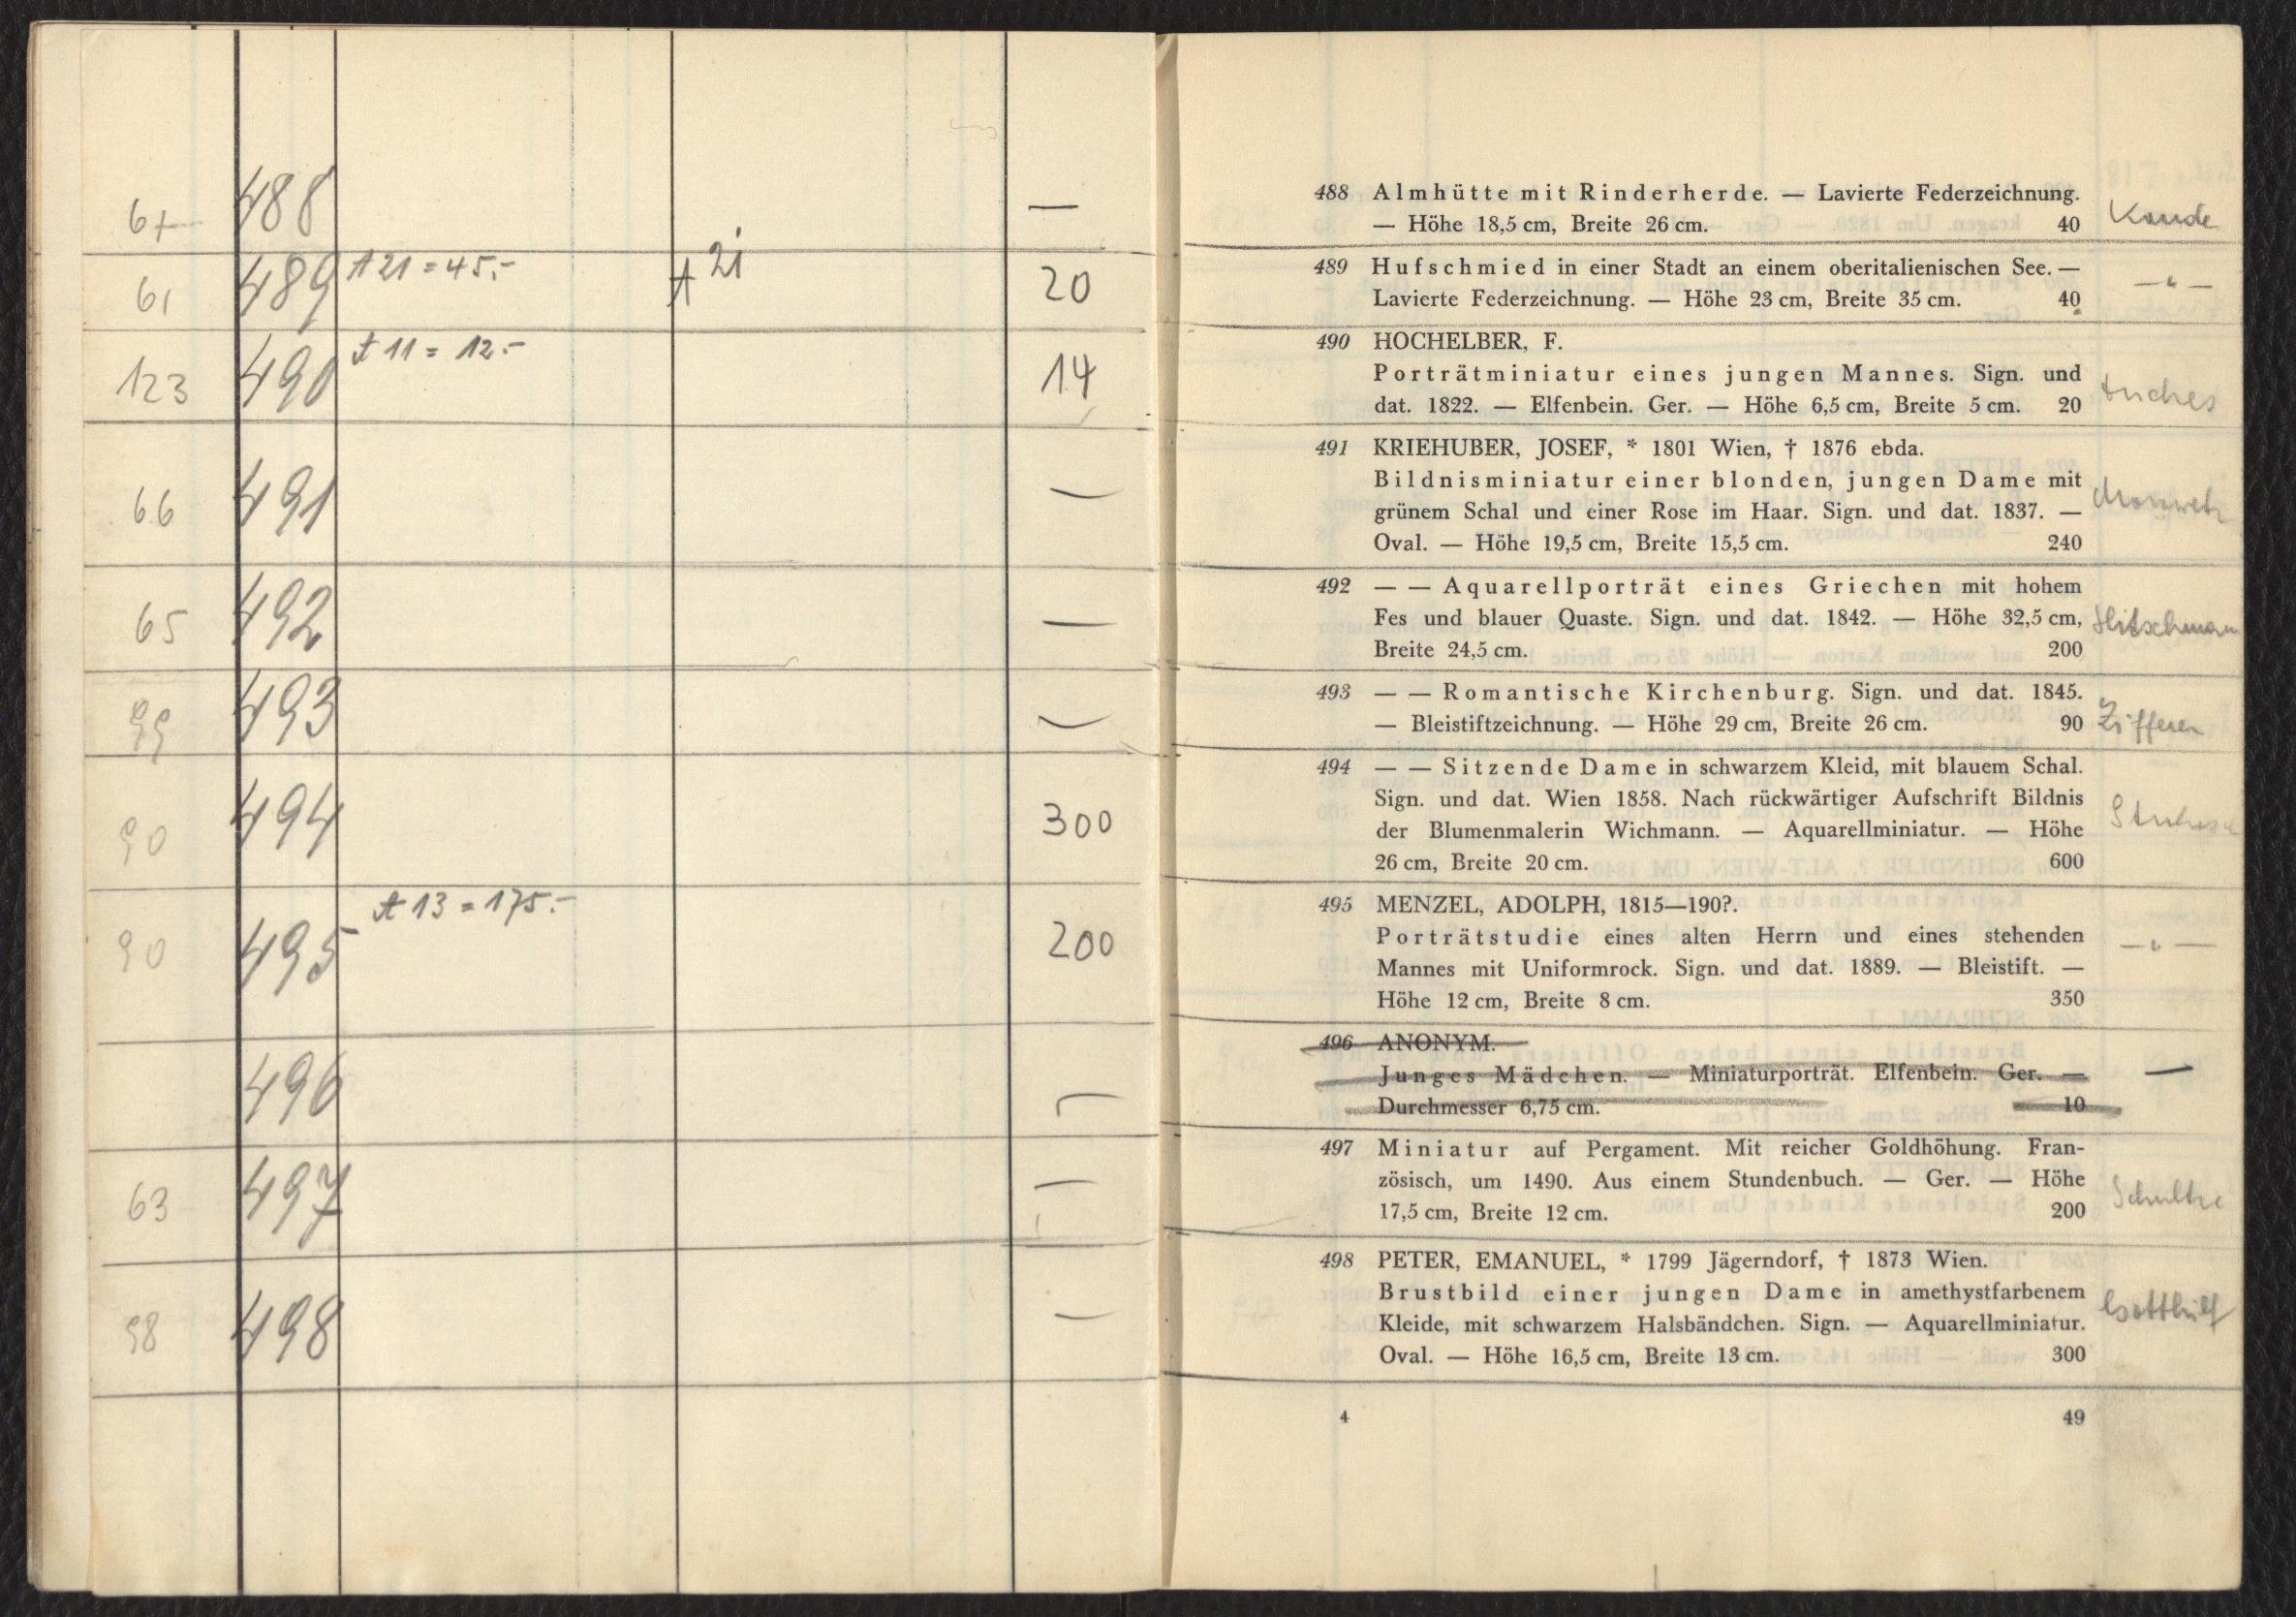 61 488 —
61 489 A 21 = 45.- A 21 20
123 490 A 11 = 12.- 14
66 491 —
65 492 —
99 493 —
90 494 300
90 495 A 13 = 175.- 200
496 —
63 497 —
98 498 —
488 Almhütte mit Rinderherde. — Lavierte Federzeichnung.
— Höhe 18,5 cm, Breite 26 cm. 40
489 Hufschmied in einer Stadt an einem oberitalienischen See. —
Lavierte Federzeichnung. — Höhe 23 cm, Breite 35 cm. 40 — " —
490 HOCHELBER, F.
Porträtminiatur eines jungen Mannes. Sign. und
dat. 1822. — Elfenbein. Ger. — Höhe 6,5 cm, Breite 5 cm. 20
491 KRIEHUBER, JOSEF, * 1801 Wien, † 1876 ebda.
Bildnisminiatur einer blonden, jungen Dame mit
grünem Schal und einer Rose im Haar. Sign. und dat. 1837. —
Oval. — Höhe 19,5 cm, Breite 15,5 cm. 240
492 — — Aquarellporträt eines Griechen mit hohem
Fes und blauer Quaste. Sign. und dat. 1842. — Höhe 32,5 cm, Hitschmann
Breite 24,5 cm. 200
493 — — Romantische Kirchenburg. Sign. und dat. 1845.
— Bleistiftzeichnung. — Höhe 29 cm, Breite 26 cm. 90 Zifferer
494 — — Sitzende Dame in schwarzem Kleid, mit blauem Schal.
Sign. und dat. Wien 1858. Nach rückwärtiger Aufschrift Bildnis
der Blumenmalerin Wichmann. — Aquarellminiatur. — Höhe
26 cm, Breite 20 cm. 600
495 MENZEL, ADOLPH, 1815—190?.
Porträtstudie eines alten Herrn und eines stehenden — " —
Mannes mit Uniformrock. Sign. und dat. 1889. — Bleistift. —
Höhe 12 cm, Breite 8 cm. 350
496 ANONYM.
Junges Mädchen. — Miniaturporträt. Elfenbein. Ger. — —
Durchmesser 6,75 cm. 10
497 Miniatur auf Pergament. Mit reicher Goldhöhung. Fran-
zösisch, um 1490. Aus einem Stundenbuch. — Ger. — Höhe Schultze
17,5 cm, Breite 12 cm. 200
498 PETER, EMANUEL, * 1799 Jägerndorf, † 1873 Wien.
Brustbild einer jungen Dame in amethystfarbenem Gotthilf
Kleide, mit schwarzem Halsbändchen. Sign. — Aquarellminiatur.
Oval. — Höhe 16,5 cm, Breite 13 cm. 300
4 49